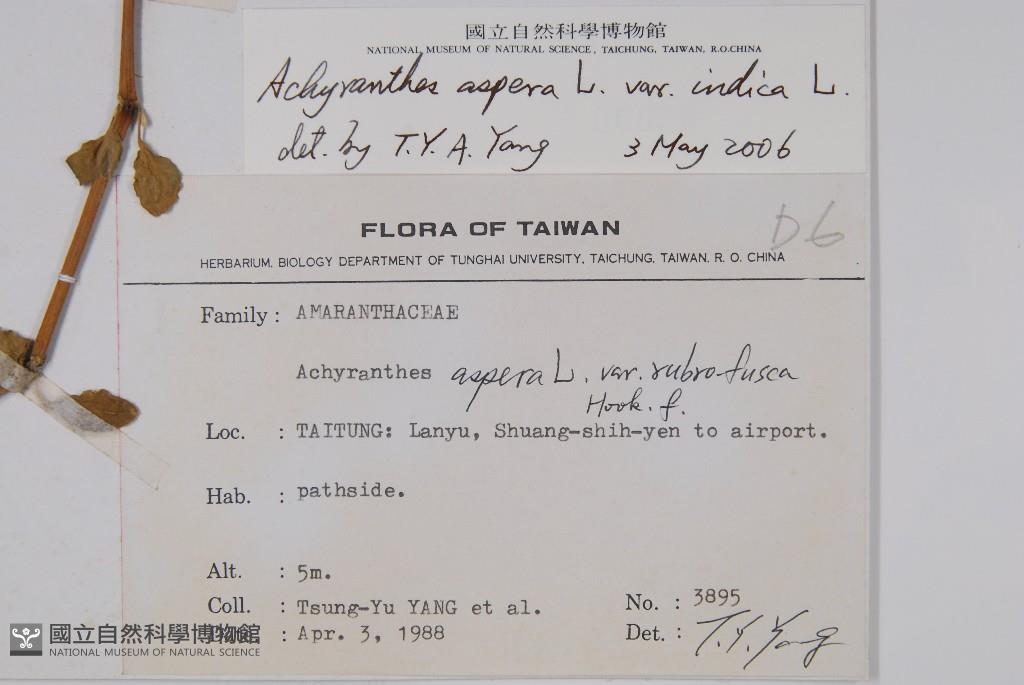 國立自然科學博物館
NATIONAL MUSEUM OF NATURAL SCIENCE, TAICHUNG, TAIWAN, R.O.CHINA
Achyranthes aspera L. var. indica L.
det. by T.Y.A. Yang 3 May 2006
D6
FLORA OF TAIWAN
HERBARIUM, BIOLOGY DEPARTMENT OF TUNGHAI UNIVERSITY, TAICHUNG, TAIWAN, R. O. CHINA
Family : AMARANTHACEAE
Achyranthes aspera L. var. rubro-fusca
Hook. f.
Loc. : TAITUNG: Lanyu, Shuang-shih-yen to airport.
Hab. : pathside.
Alt. : 5m.
Coll. : Tsung-Yu YANG et al. No. : 3895
: Apr. 3, 1988 Det. : T.Y. Yang
國立自然科學博物館
NATIONAL MUSEUM OF NATURAL SCIENCE